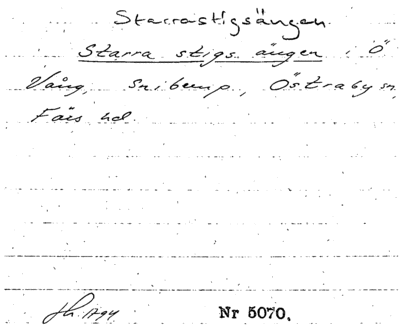 Starrastigsängen
Starra stigs ängen i Ö
Vång, Snibemp, Östraby sn,
Färs hd.
Nr 5070.